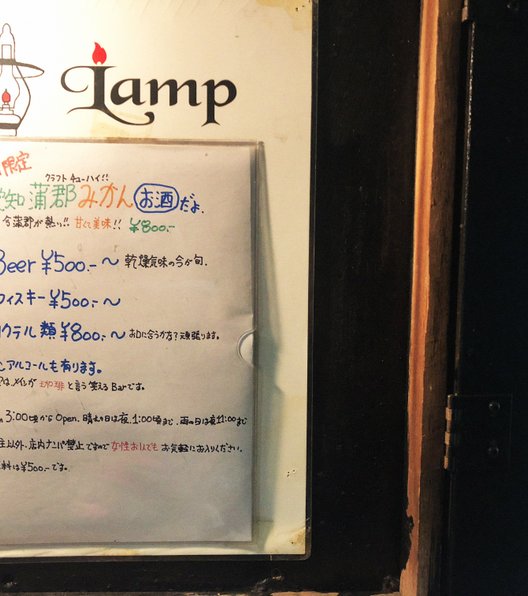 Lamp
限定
クラフトチューハイ!!
知 蒲郡 みかん お酒 だよ、
今蒲郡が熱い!! 甘くて美味!! ¥800.-
Beer ¥500.- 〜 乾燥気味の今が旬、
ィスキー ¥500.- 〜
クテル類 ¥800.- 〜 お口に合うかな？頑張ります。
アルコールも有ります。
は、メインが珈琲と言う笑えるBarです。
3:00頃からOpen. 晴れの日は夜、1:00頃まで、雨の日は夜11:00まで
以外、店内ナンパ禁止ですので女性お1人でもお気軽にお入りください。
料は¥500.-です。